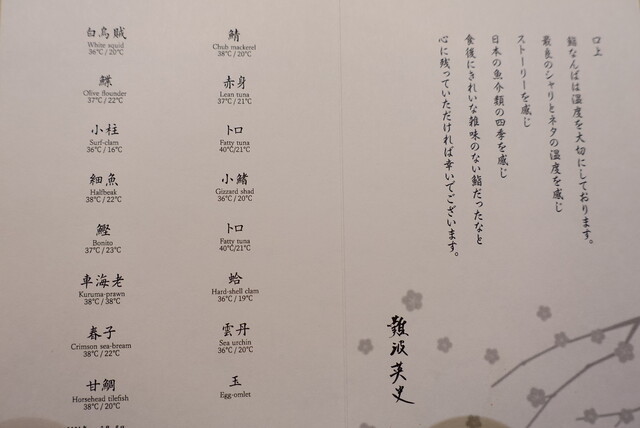 口上
鮨なんばは温度を大切にしております。
最良のシャリとネタの温度を感じ
ストーリーを感じ
日本の魚介類の四季を感じ
食後にきれいな雑味のない鮨だったなと
心に残っていただければ幸いでございます。
難波英史
白烏賊
White squid
36℃ / 20℃
鰈
Olive flounder
37℃ / 22℃
小柱
Surf-clam
36℃ / 16℃
細魚
Halfbeak
38℃ / 22℃
鰹
Bonito
37℃ / 23℃
車海老
Kuruma-prawn
38℃ / 38℃
春子
Crimson sea-bream
38℃ / 22℃
甘鯛
Horsehead tilefish
38℃ / 20℃
鯖
Chub mackerel
38℃ / 20℃
赤身
Lean tuna
37℃ / 21℃
トロ
Fatty tuna
40℃/21℃
小鰭
Gizzard shad
36℃ / 20℃
トロ
Fatty tuna
40℃/21℃
蛤
Hard-shell clam
36℃ / 19℃
雲丹
Sea urchin
36℃ / 20℃
玉
Egg-omlet